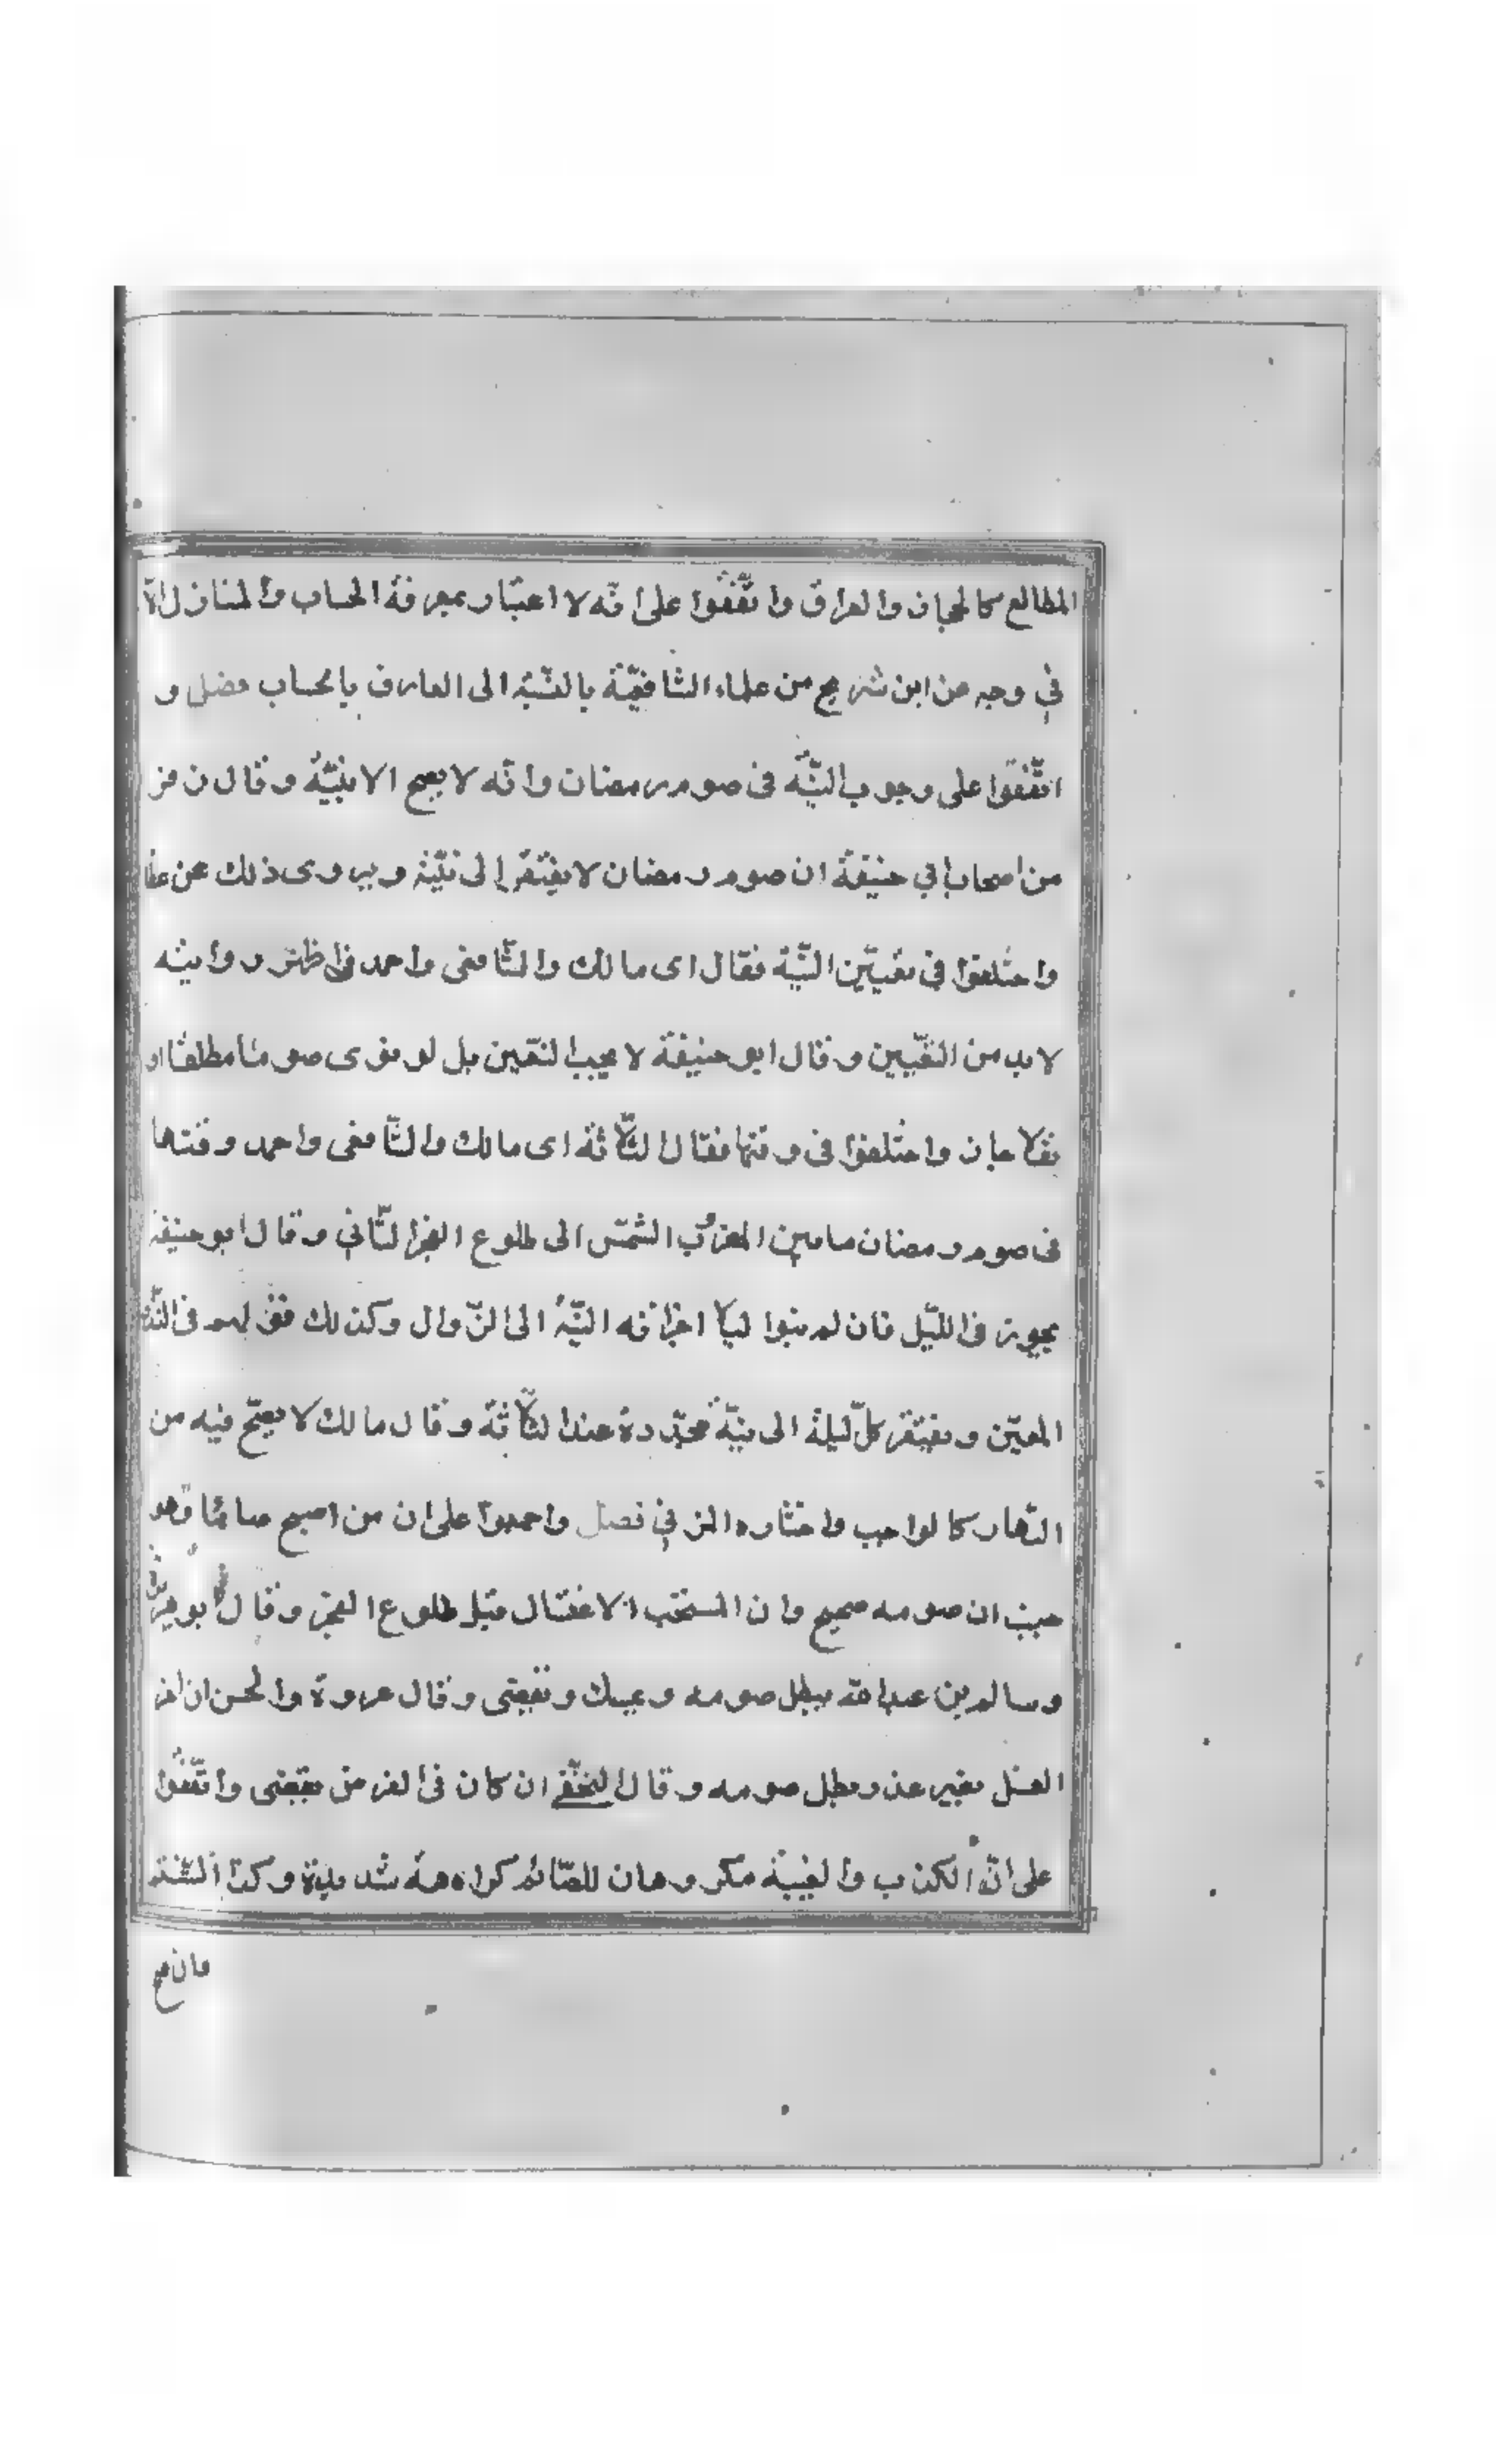 المطالع كالحجاز والعراق واتّفقوا على انّه لا اعتبار بمعرفة الحساب والمنازل الا
في وجه عن ابن شريح من علماء الشّافعيّة بالنّسبة الى العارف بالحساب فصل و
اتّفقوا على وجوب النيّة فى صوم رمضان وانّه لا يصح الا بنيّة وقال زفر
من اصحاب ابي حنيفة ان صوم رمضان لا يفتقر الى نيّة ويروى ذلك عن عطا
واختلفوا في تعيّين النيّة فقال اى مالك والشّافعى واحمد في اظهر روايتيه
لا بد من التعّيين وقال ابو حنيفة لا يجب التعّين بل لو نوى صوما مطلقا او
نفلا جاز واختلفوا فى وقتها فقال الثّلاثة اى مالك والشّافعى واحمد وقتها
فى صوم رمضان ما بين المغروب الشمّس الى طلوع الفجر الثّاني وقال ابو حنيفة
يجوز فى اللّيل فان لم ينوا ليلا اجزاته النيّة الى الزّوال وكذلك قولهم فى النّذر
المعيّن ويفتقر كلّ ليلة الى نيّة مجدّدة عند الثّلاثة وقال مالك لا يصحّ فيه من
النّهار كالواجب واختاره المزني فصل واجمعوا على ان من اصبح صائما وهو
جنب ان صومه صحيح وان المستحّب الاغتسال قبل طلوع الفجر وقال ابو هريرة
وسالم بن عبد الله يبطل صومه ويمسك ويقضى وقال عروة والحسن ان اخر
الغسل بغير عذر يبطل صومه وقال النخعّي ان كان فى الفرض يقضى واتّفقوا
على انّ الكذب والغيبة مكروهان للصّائم كراههة شديدة وكذا الشّتم
وان صح